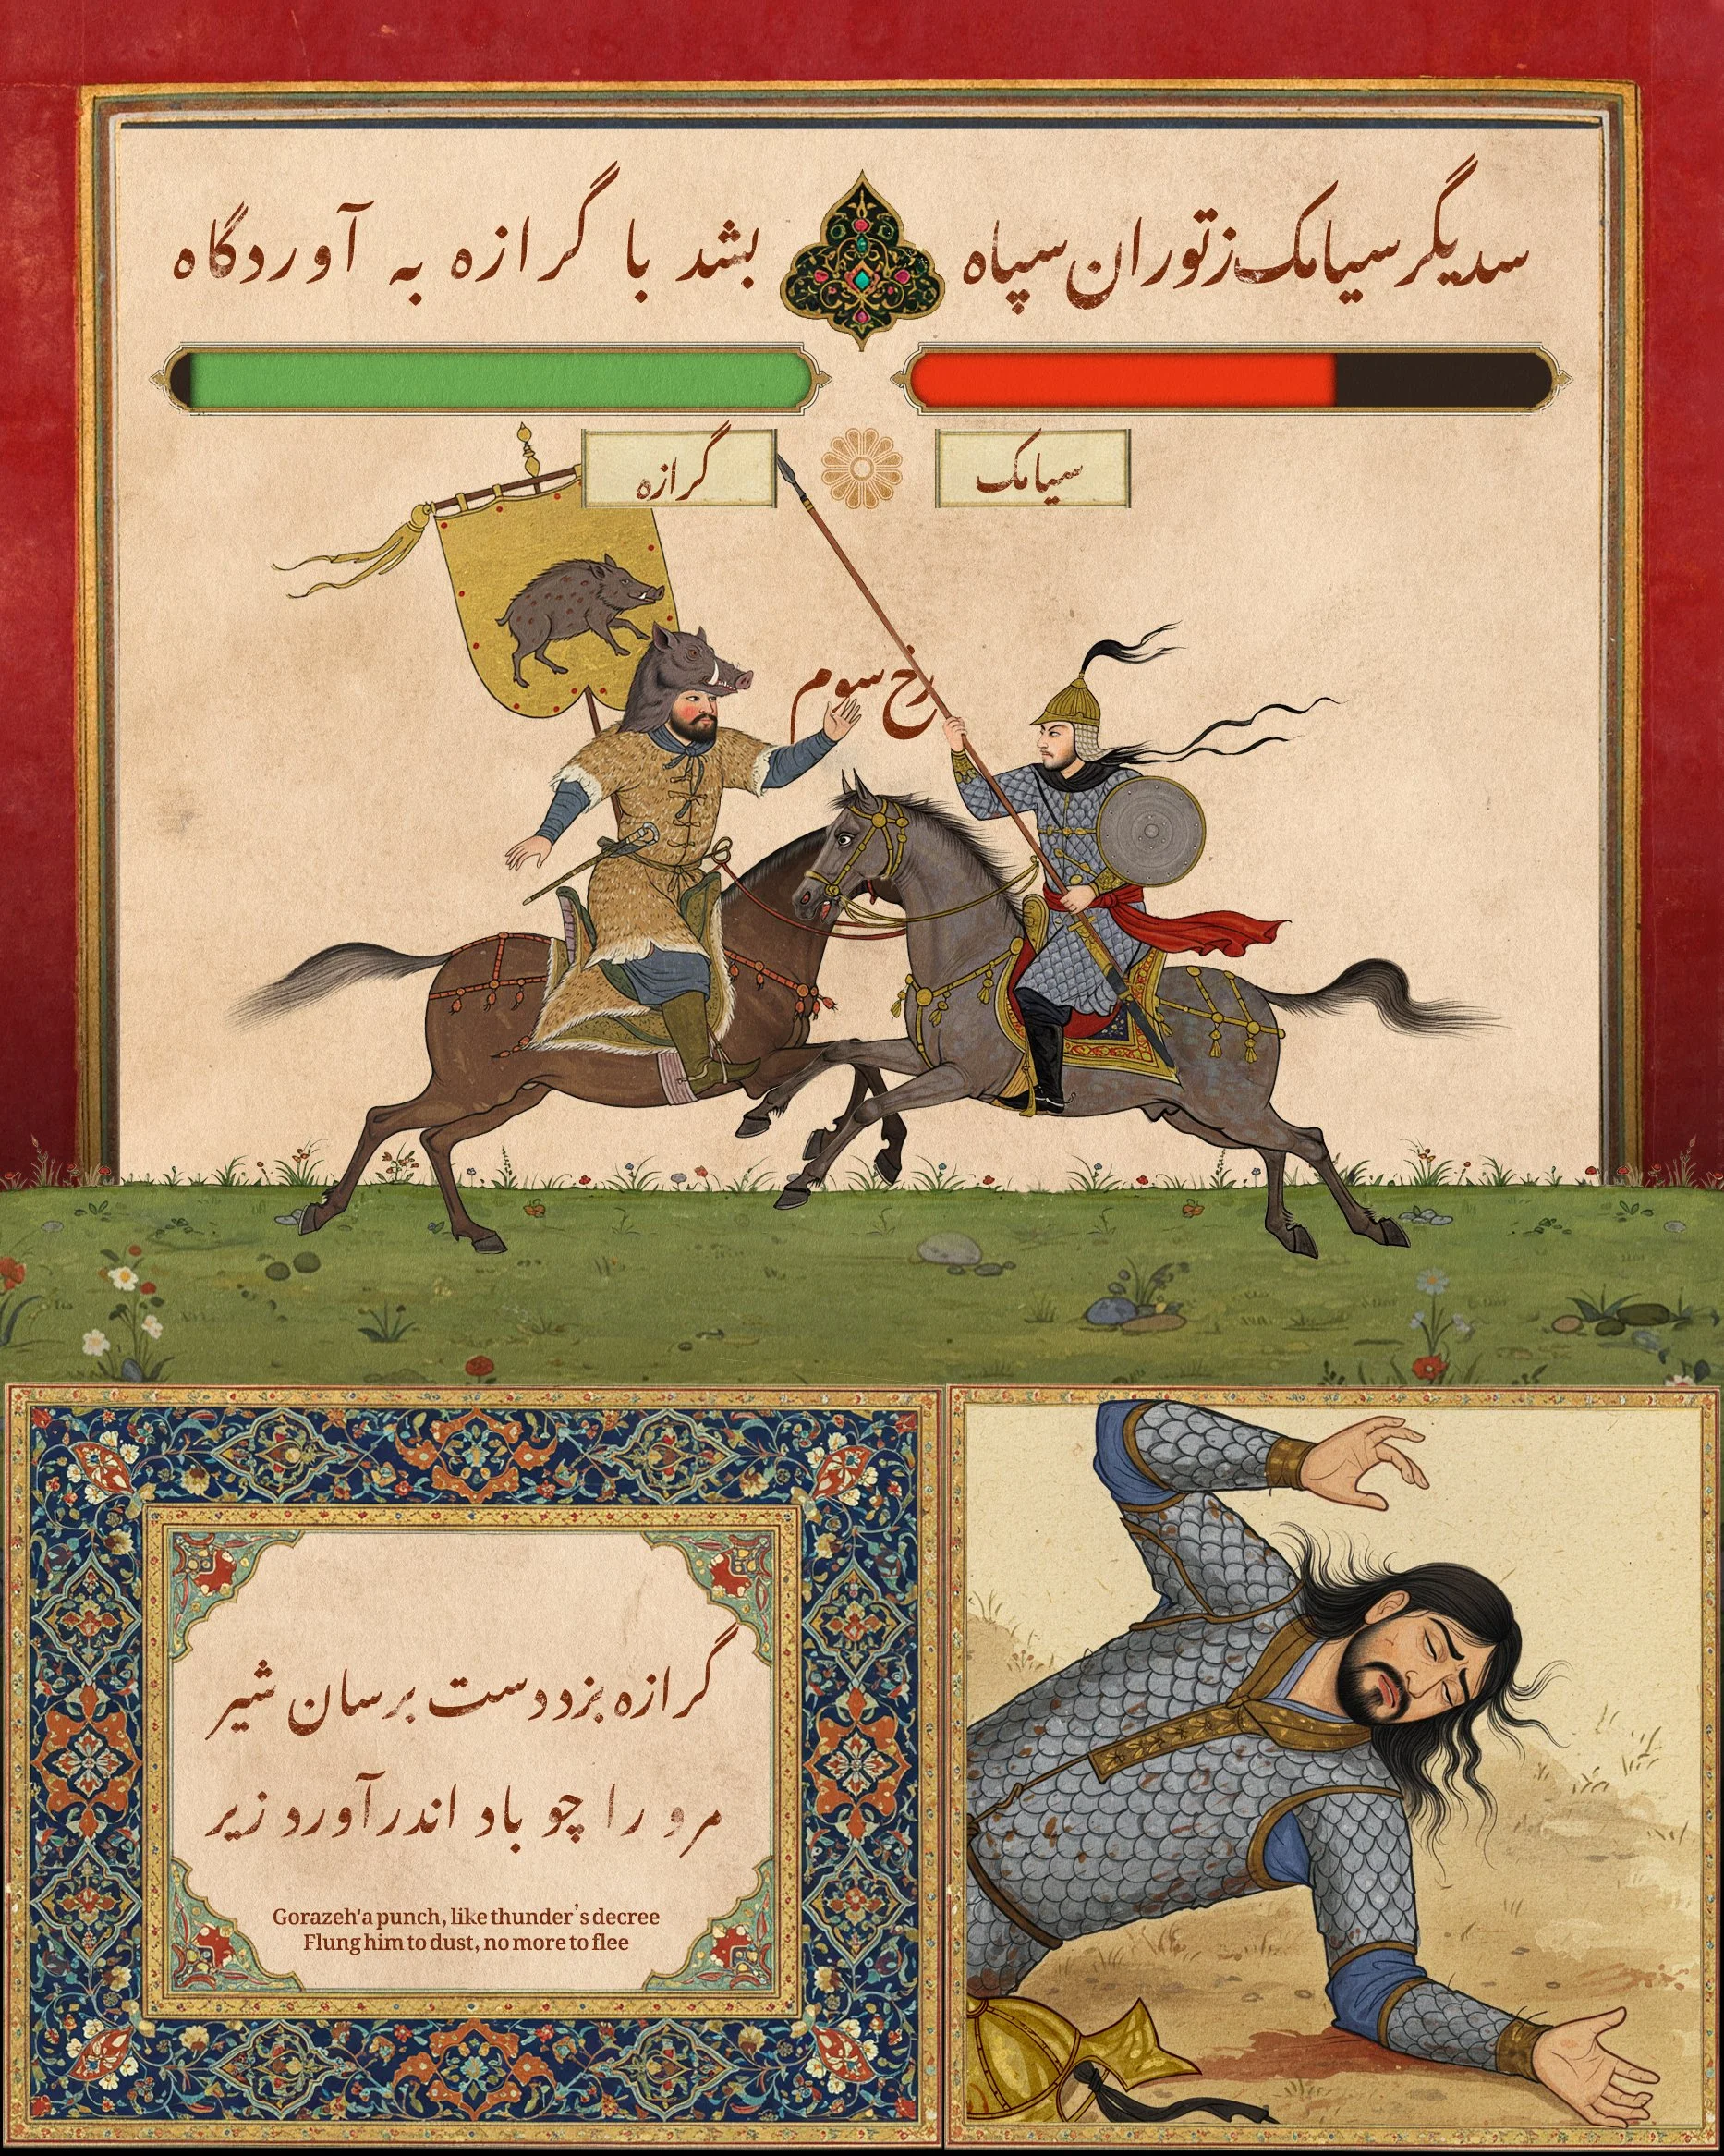 سدیگر سیامک ز توران سپاه
بشد با گرازه به آوردگاه
گرازه
سیامک
رخ سوم
گرازه بزد دست برسان شیر
مرو را چو باد اندر آورد زیر
Gorazeh'a punch, like thunder's decree
Flung him to dust, no more to flee